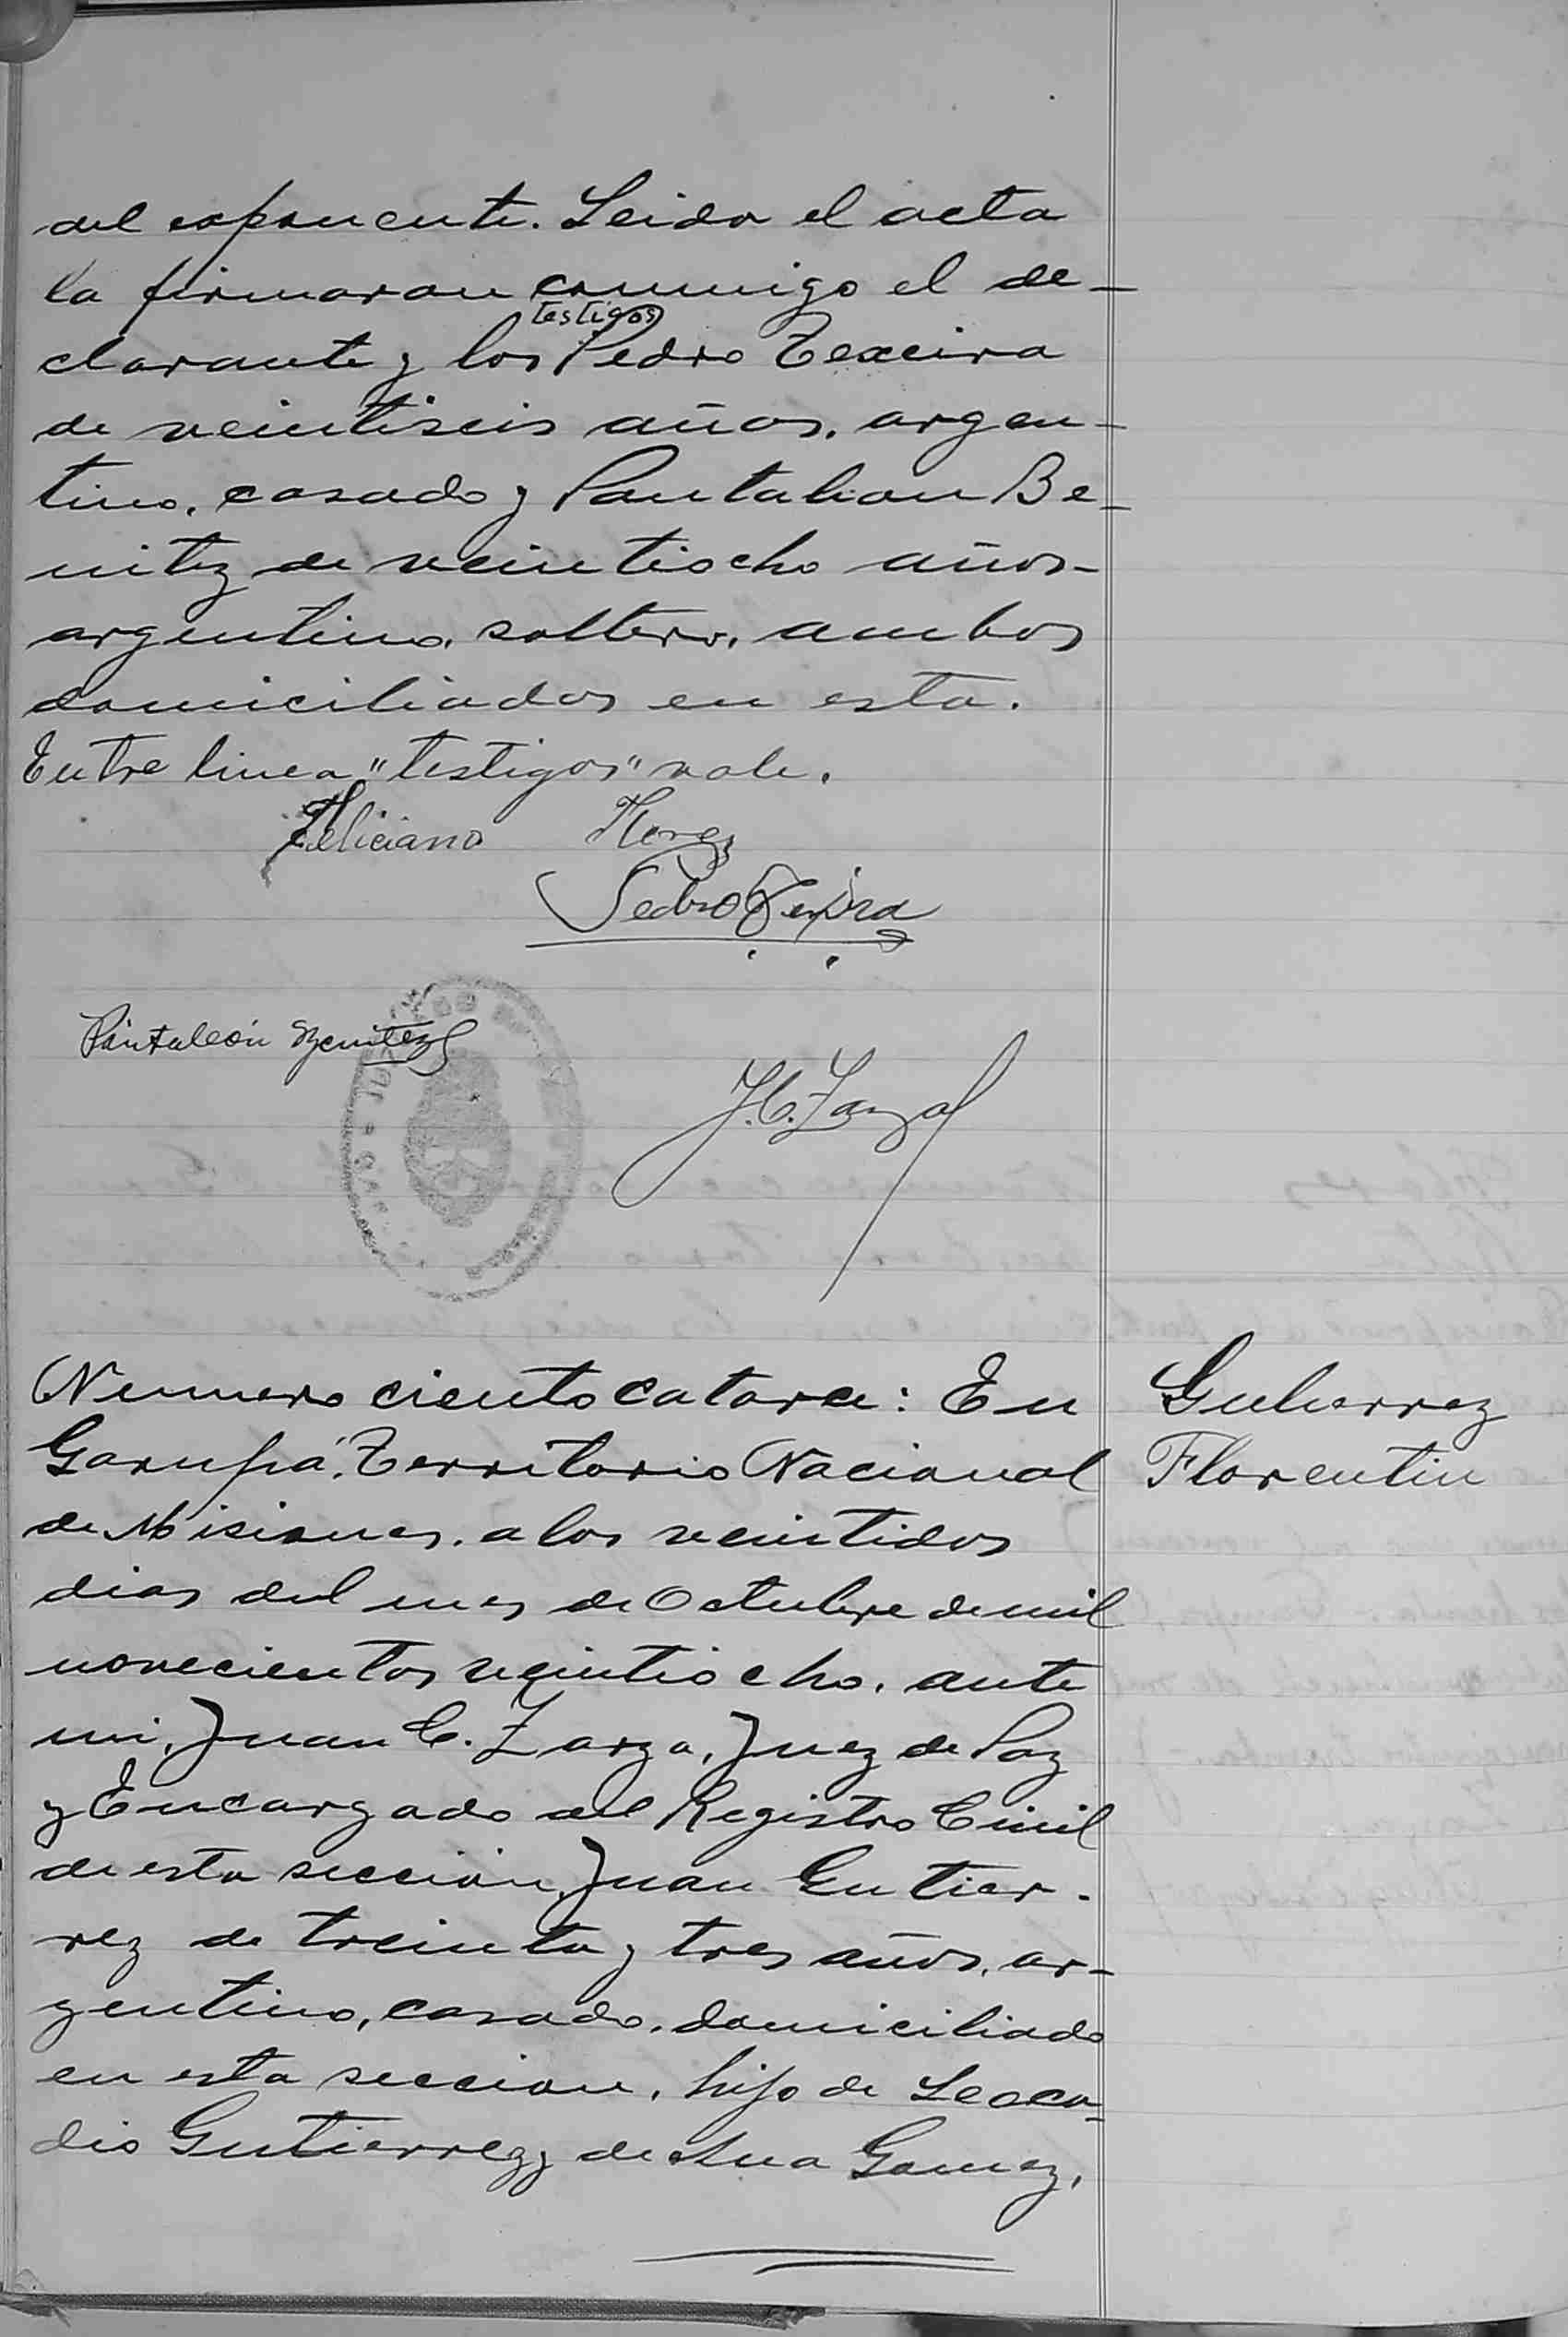 del exponente. Leida el acta
la firmaron conmigo el de-
testigos
clarante y los Pedro Texeira
de veintiseis años, argen-
tino, casado y Pantaleon Be-
nitez de veintiocho años-
argentino, soltero, ambos
domiciliados en esta.
Entre linea "testigos" vale.
Feliciano Flores
Pedro Texeira
Pantaleón Benitez
J. C. Zarza
Numero ciento catorce: En
Garupá, Territorio Nacional
de Misiones, a los veintidos
dias del mes de Octubre de mil
novecientos veintiocho, ante
mi, Juan C. Zarza, Juez de Paz
y Encargado del Registro Civil
de esta sección, Juan Gutier-
rez de treinta y tres años, ar-
gentino, casado, domiciliado
en esta seccion, hijo de Leoca-
dio Gutierrez y de Ana Gomez,
Gutierrez
Florentin